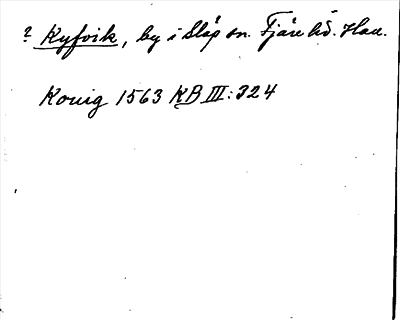 ? Kyfvik, by i Släp sn. Fjäre hd. Hall.
Kovig 1563 KB III: 324